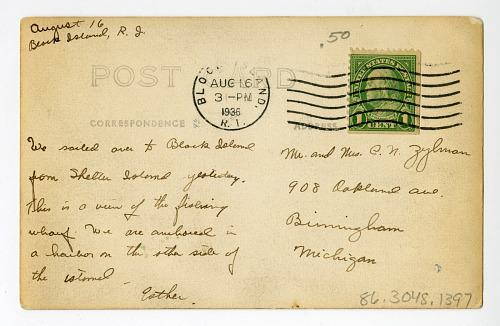 August 16
Block Island, R. I.
.50
POST CARD
CORRESPONDENCE
ADDRESS
BLOCK ISLAND,
AUG 16
3-PM
1936
R.I.
UNITED STATES POSTAGE
1 CENT 1
We sailed over to Block Island
from Shelter Island yesterday.
This is a view of the fishing
wharf. We are anchored in
a harbor on the other side of
the island.
Esther.
Mr. and Mrs. C. N. Zylman
908 Oakland ave.
Birmingham
Michigan
86.3048.1397